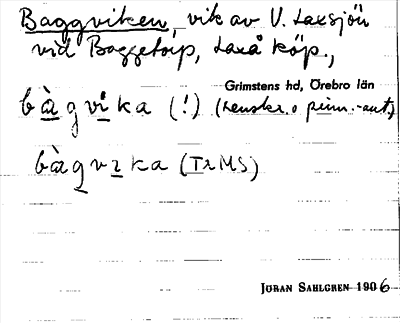 Baggviken, vik av V. Laxsjön
vid Baggetorp, Laxå köp.,
Grimstens hd, Örebro län
bàgvika (!) (renskr. o prim.-ant.)
bàgvika (Tr MS)
JÖRAN SAHLGREN 1906